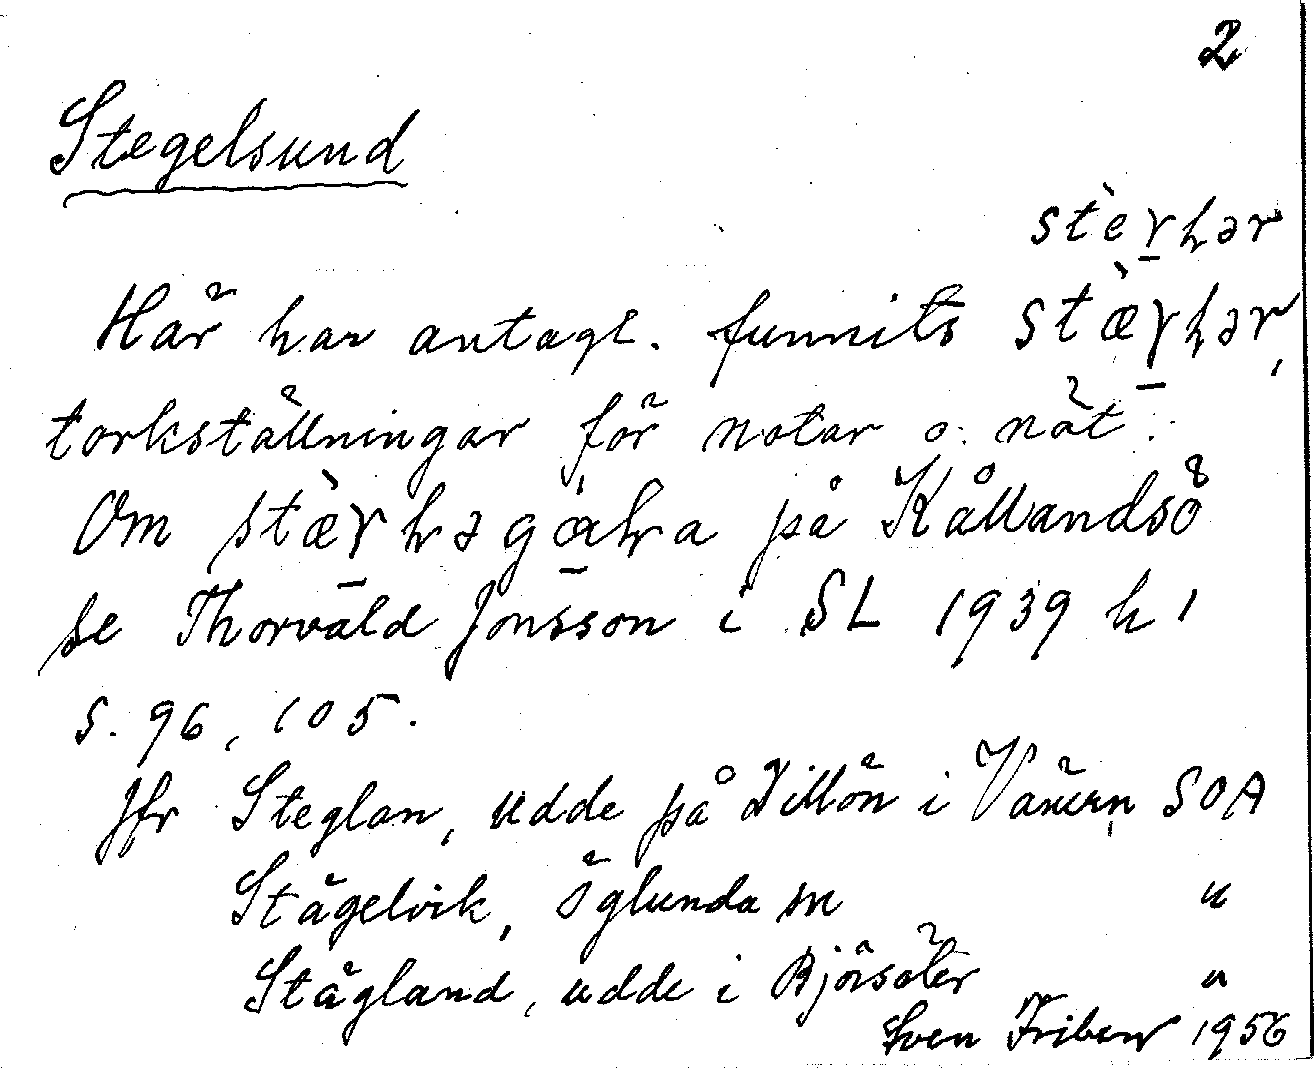 2
Stegelsund
stèγhər
Här har antagl. funnits stæ̀γhər,
torkställningar för notar o. nät.
Om stæ̀γhəgaha på Kållandsö
se Thorvald Jonsson i SL 1939 h 1
s. 96, 105.
Jfr Steglan, udde på Dillön i Vänern, SOA
Stägelvik, Öglunda sn "
Stägland, udde i Björsäter "
Sven Friberg 1956